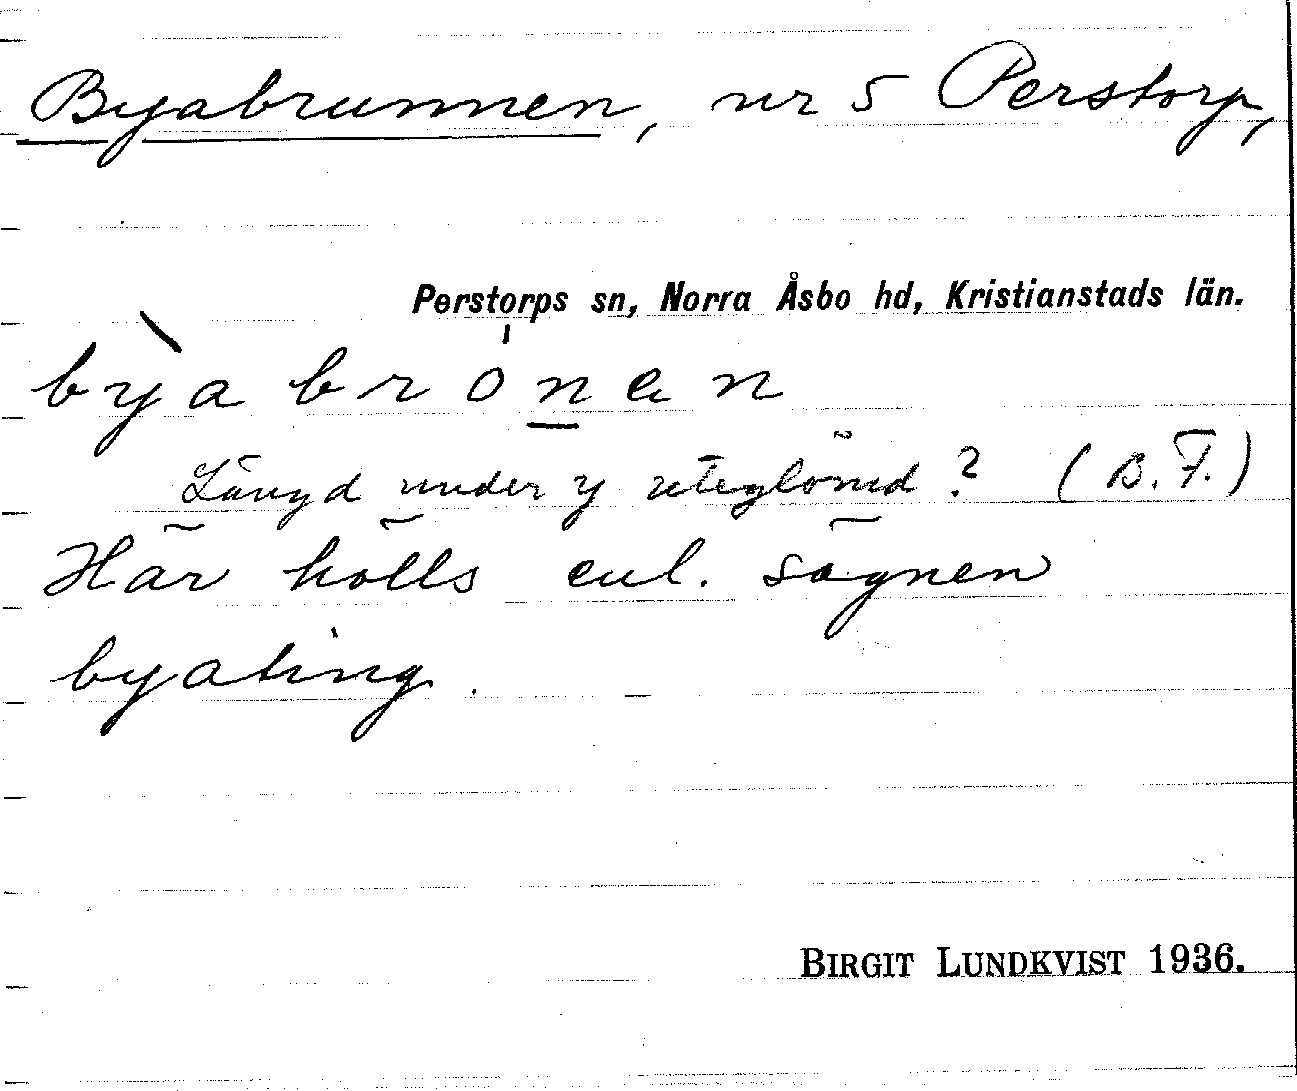 Byabrunnen, nr 5 Perstorp,
Perstorps sn, Norra Åsbo hd, Kristianstads län.
bỳabrónan
Längd under y uteglömd? (B.F.)
Här hölls enl. sägnen
byating.
BIRGIT LUNDKVIST 1936.